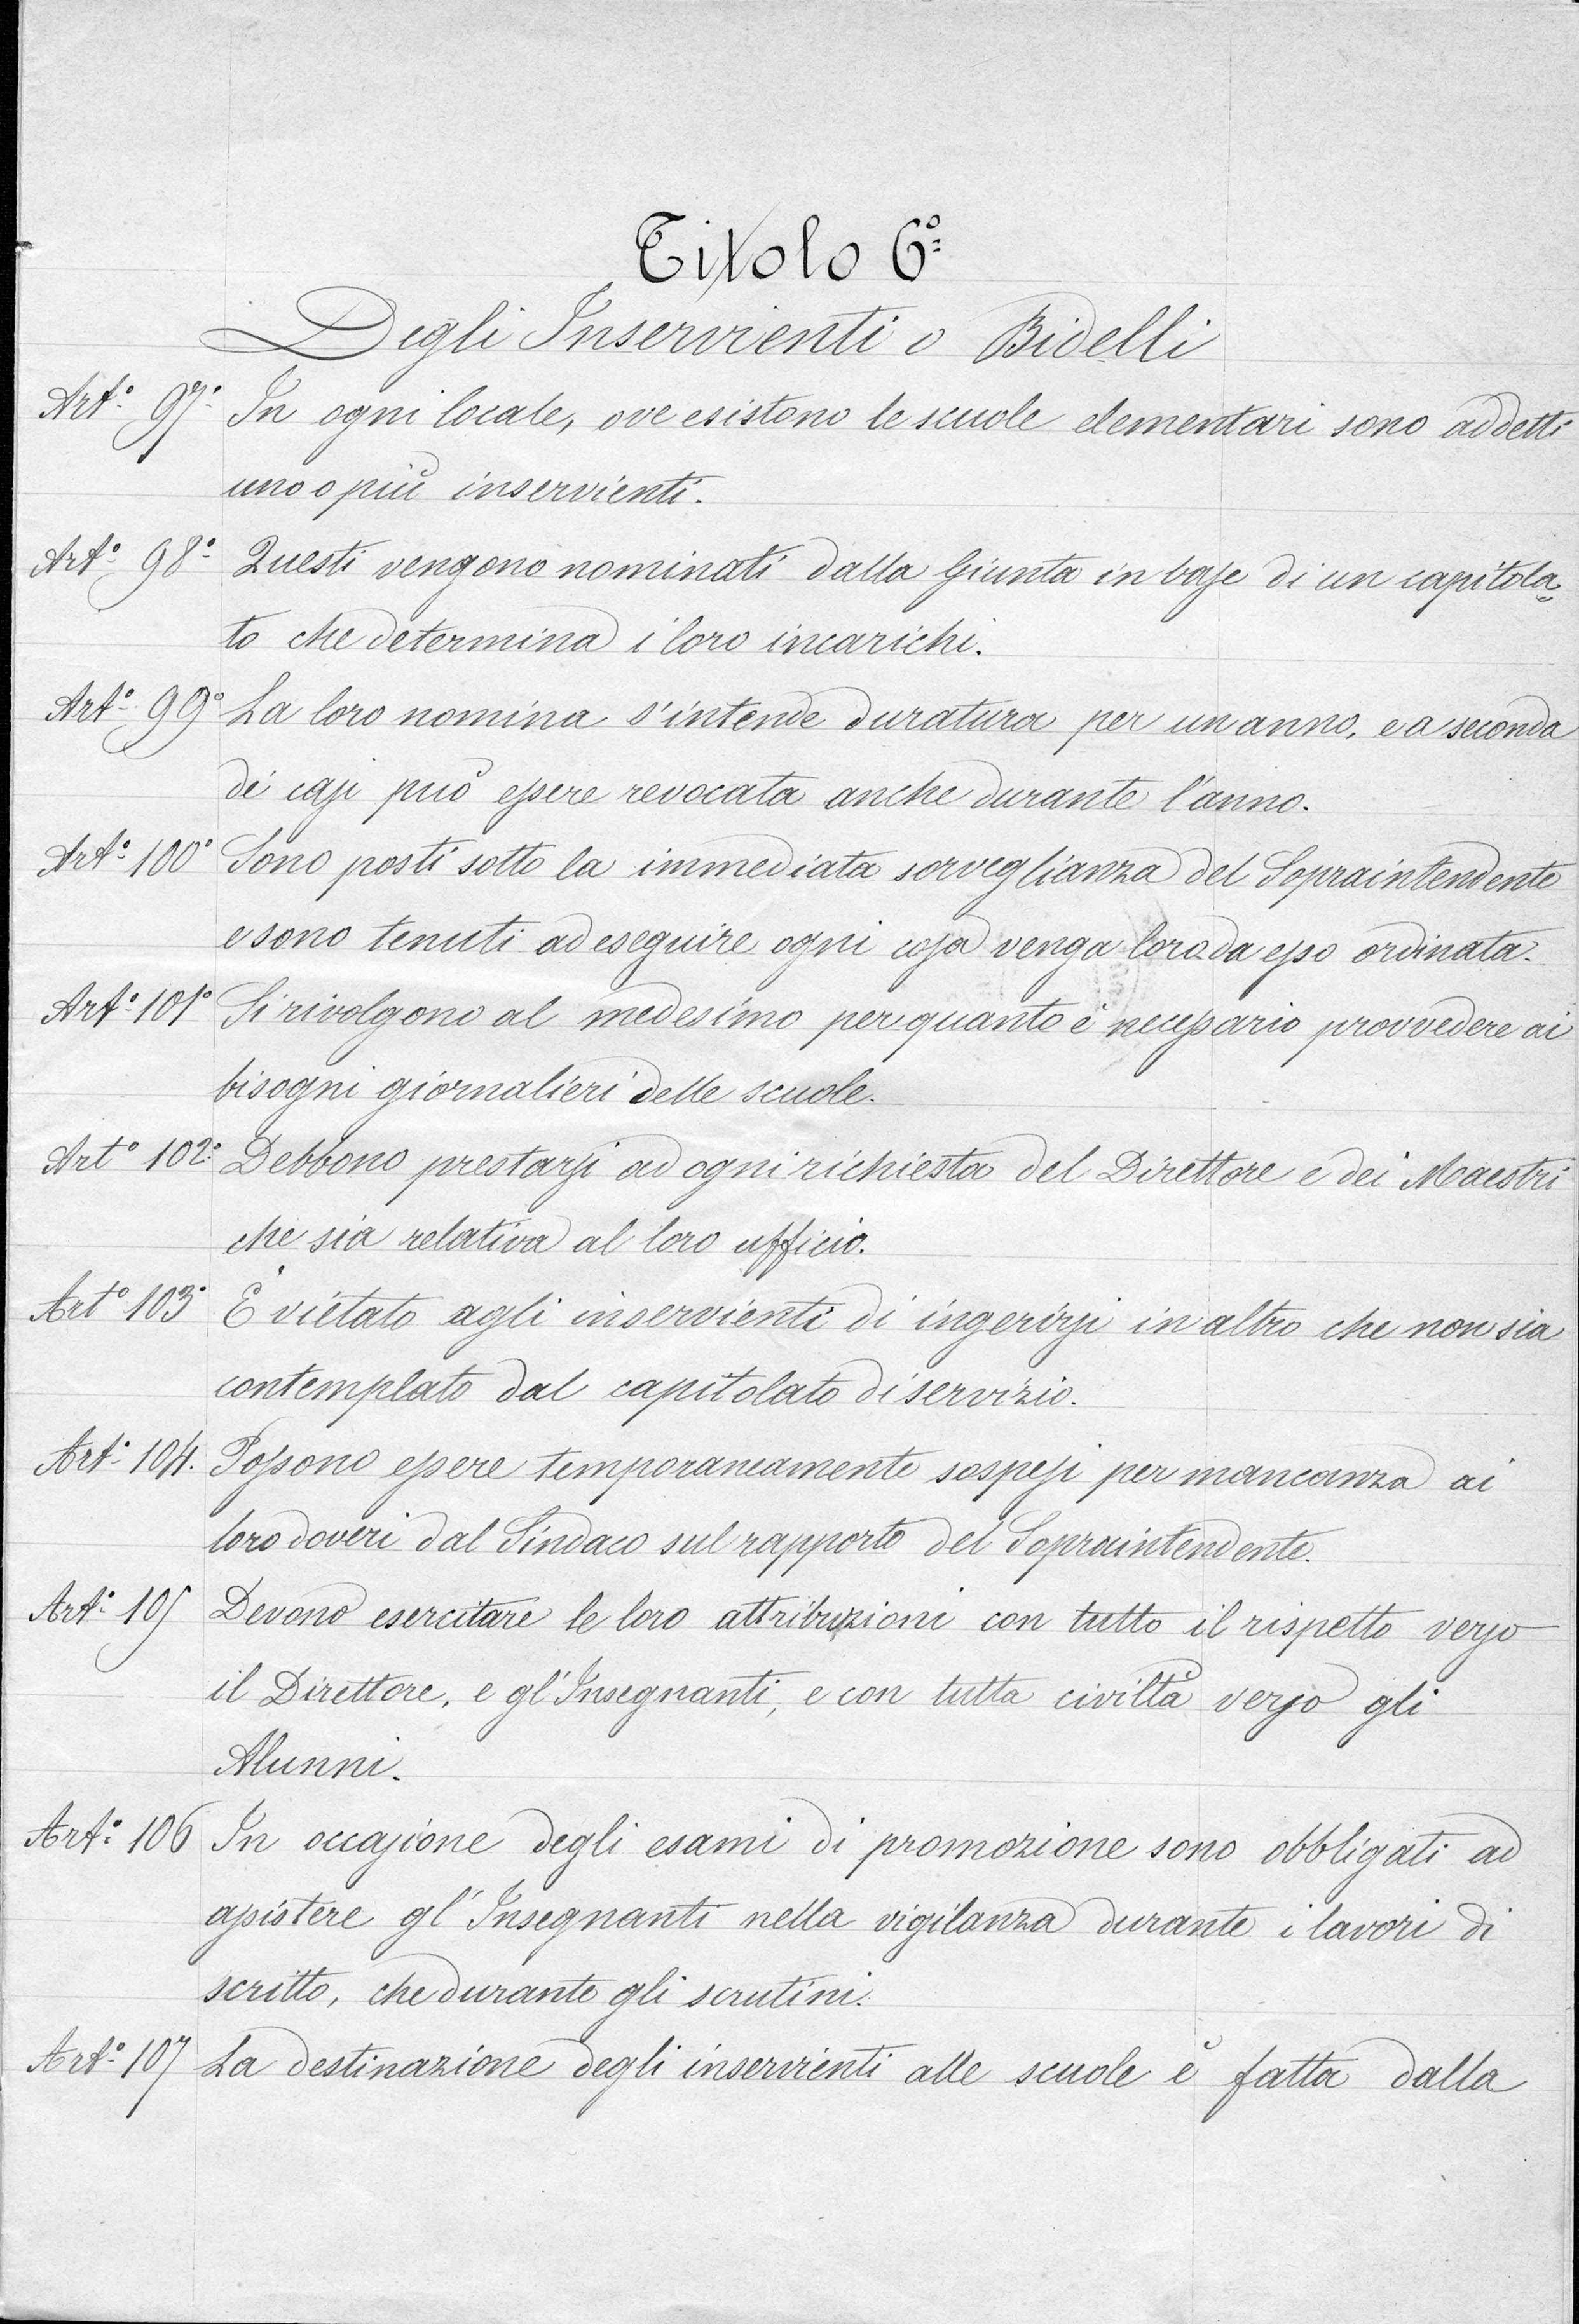 Titolo 6º
Degli Inservienti o Bidelli
Artº 97º In ogni locale, ove esistono le scuole elementari sono addetti
uno o più inservienti.
Artº 98º Questi vengono nominati dalla Giunta in base di un capitola=
to che determina i loro incarichi.
Artº 99º La loro nomina s'intende duratura per un anno, e a seconda
de' casi può essere revocata anche durante l'anno.
Artº 100º Sono posti sotto la immediata sorveglianza del Sopraintendente
e sono tenuti ad eseguire ogni cosa venga loro da esso ordinata.
Artº 101º Si rivolgono al medesimo per quanto è necessario provvedere ai
bisogni giornalieri delle scuole.
Artº 102º Debbono prestarsi ad ogni richiesta del Direttore e dei Maestri
che sia relativa al loro ufficio.
Artº 103º È vietato agli inservienti di ingerirsi in altro che non sia
contemplato dal capitolato di servizio.
Artº 104. Possono essere temporaneamente sospesi per mancanza ai
loro doveri dal Sindaco sul rapporto del Sopraintendente.
Artº 105 Devono esercitare le loro attribuzioni con tutto il rispetto verso
il Direttore, e gl'Insegnanti, e con tutta civiltà verso gli
Alunni.
Artº 106 In occasione degli esami di promozione sono obbligati ad
assistere gl'Insegnanti nella vigilanza durante i lavori di
scritto, che durante gli scrutini.
Artº 107 La destinazione degli inservienti alle scuole è fatta dalla